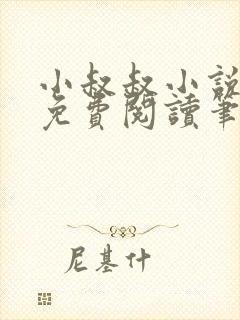 小叔叔小說
免費閱讀筆
尼基什